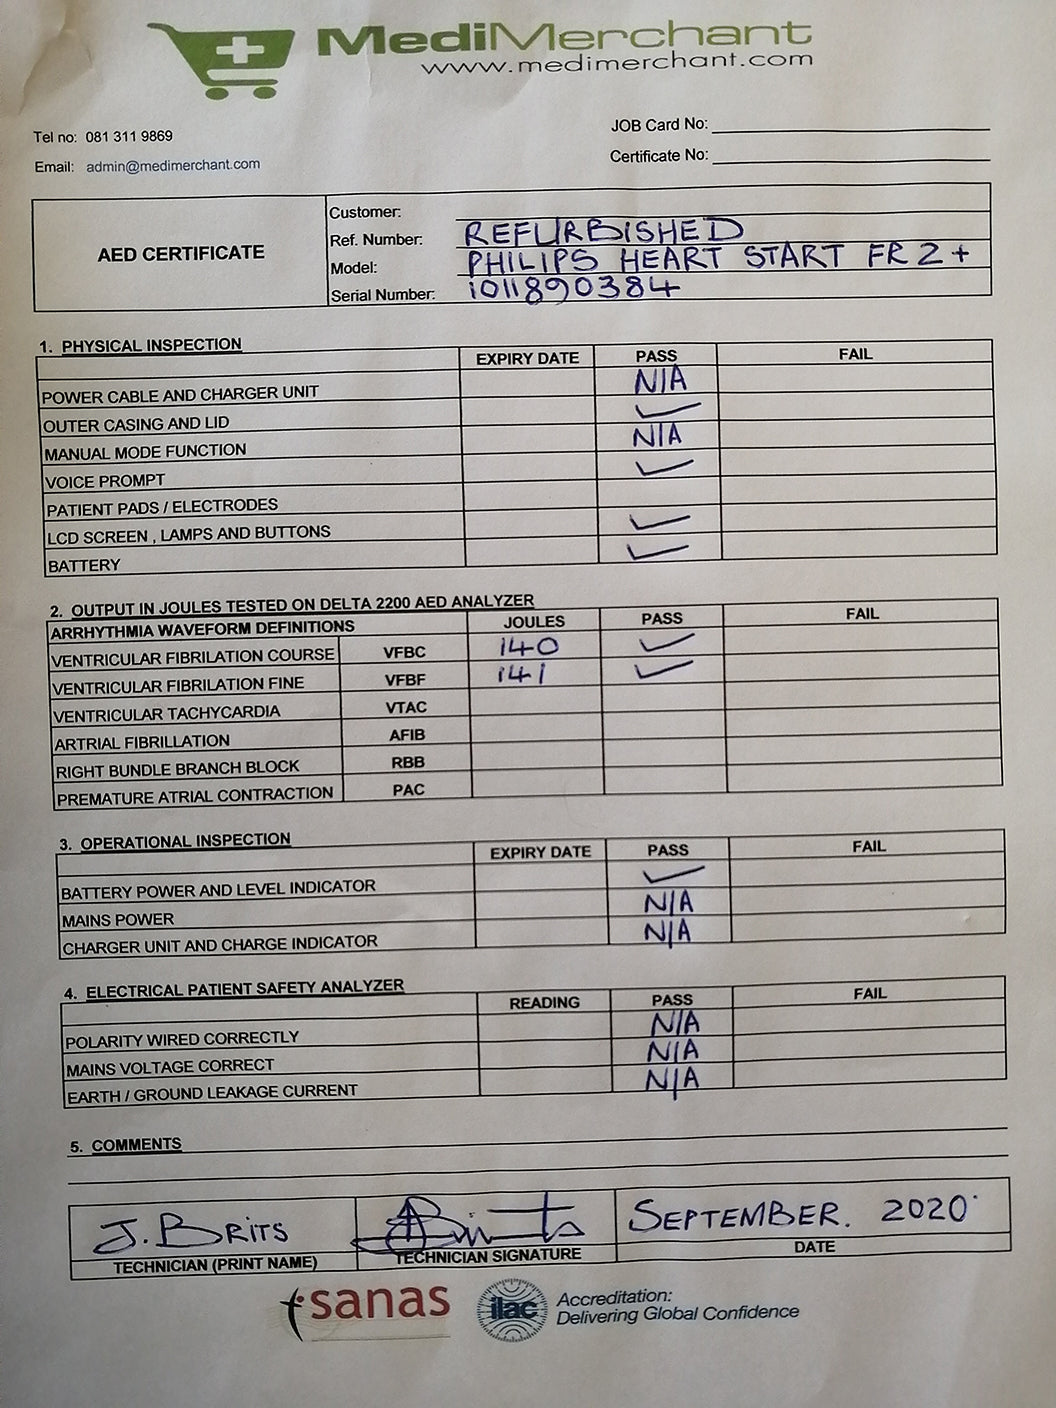 MediMerchant
www.medimerchant.com
Tel no: 081 311 9869
JOB Card No:
Email: admin@medimerchant.com
Certificate No:
AED CERTIFICATE
Customer:
Ref. Number: REFURBISHED
Model: PHILIPS HEART START FR2+
Serial Number: 1011890384
1. PHYSICAL INSPECTION
EXPIRY DATE PASS FAIL
POWER CABLE AND CHARGER UNIT N/A
OUTER CASING AND LID ✓
MANUAL MODE FUNCTION N/A
VOICE PROMPT ✓
PATIENT PADS / ELECTRODES
LCD SCREEN , LAMPS AND BUTTONS ✓
BATTERY ✓
2. OUTPUT IN JOULES TESTED ON DELTA 2200 AED ANALYZER
ARRHYTHMIA WAVEFORM DEFINITIONS JOULES PASS FAIL
VENTRICULAR FIBRILATION COURSE VFBC 140 ✓
VENTRICULAR FIBRILATION FINE VFBF 141 ✓
VENTRICULAR TACHYCARDIA VTAC
ARTRIAL FIBRILLATION AFIB
RIGHT BUNDLE BRANCH BLOCK RBB
PREMATURE ATRIAL CONTRACTION PAC
3. OPERATIONAL INSPECTION
EXPIRY DATE PASS FAIL
BATTERY POWER AND LEVEL INDICATOR ✓
MAINS POWER N/A
CHARGER UNIT AND CHARGE INDICATOR N/A
4. ELECTRICAL PATIENT SAFETY ANALYZER
READING PASS FAIL
POLARITY WIRED CORRECTLY N/A
MAINS VOLTAGE CORRECT N/A
EARTH / GROUND LEAKAGE CURRENT N/A
5. COMMENTS
J. BRITS SEPTEMBER. 2020
TECHNICIAN (PRINT NAME) TECHNICIAN SIGNATURE DATE
sanas ilac Accreditation:
Delivering Global Confidence